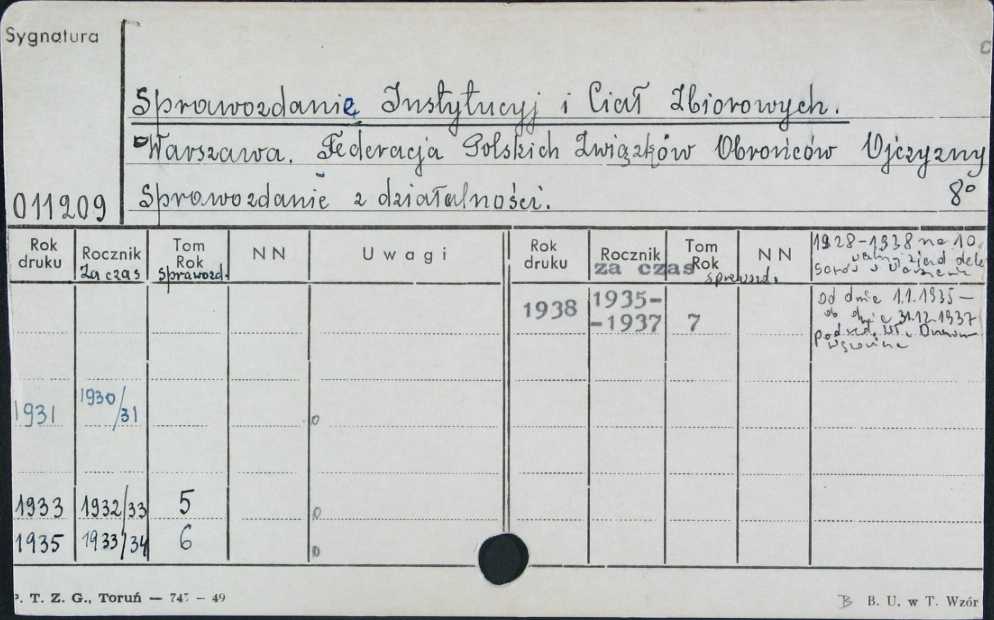 Sygnatura
Sprawozdanie Instytucyj i Ciał Zbiorowych.
Warszawa. Federacja Polskich Związków Obrońców Ojczyzny
011209 Sprawozdanie z działalności. 8°
Rok druku Rocznik Za czas Tom Rok sprawozd. NN Uwagi Rok druku Rocznik za czas Tom Rok sprawozd. NN 1928-1938 na 10.
walny zjazd dele
1938 1935-
-1937 7
od dnie 1.1.1935 -
do dnie 31.12.1937
1931 1930/31
1933 1932/33 5
1935 1933/34 6
P. T. Z. G., Toruń — 747 — 49 B B. U. w T. Wzór